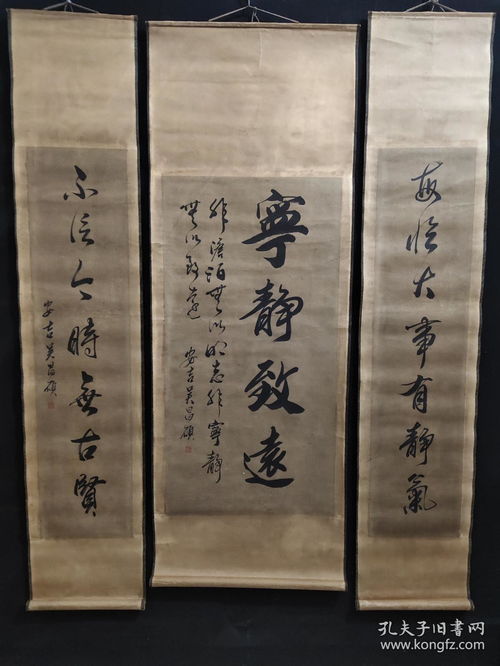 每臨大事有靜氣
寧靜致遠
非澹泊無以明志非寧靜
無以致遠 安吉吳昌碩
不信今時無古賢
安吉吳昌碩
孔夫子旧书网
www.kongfz.com